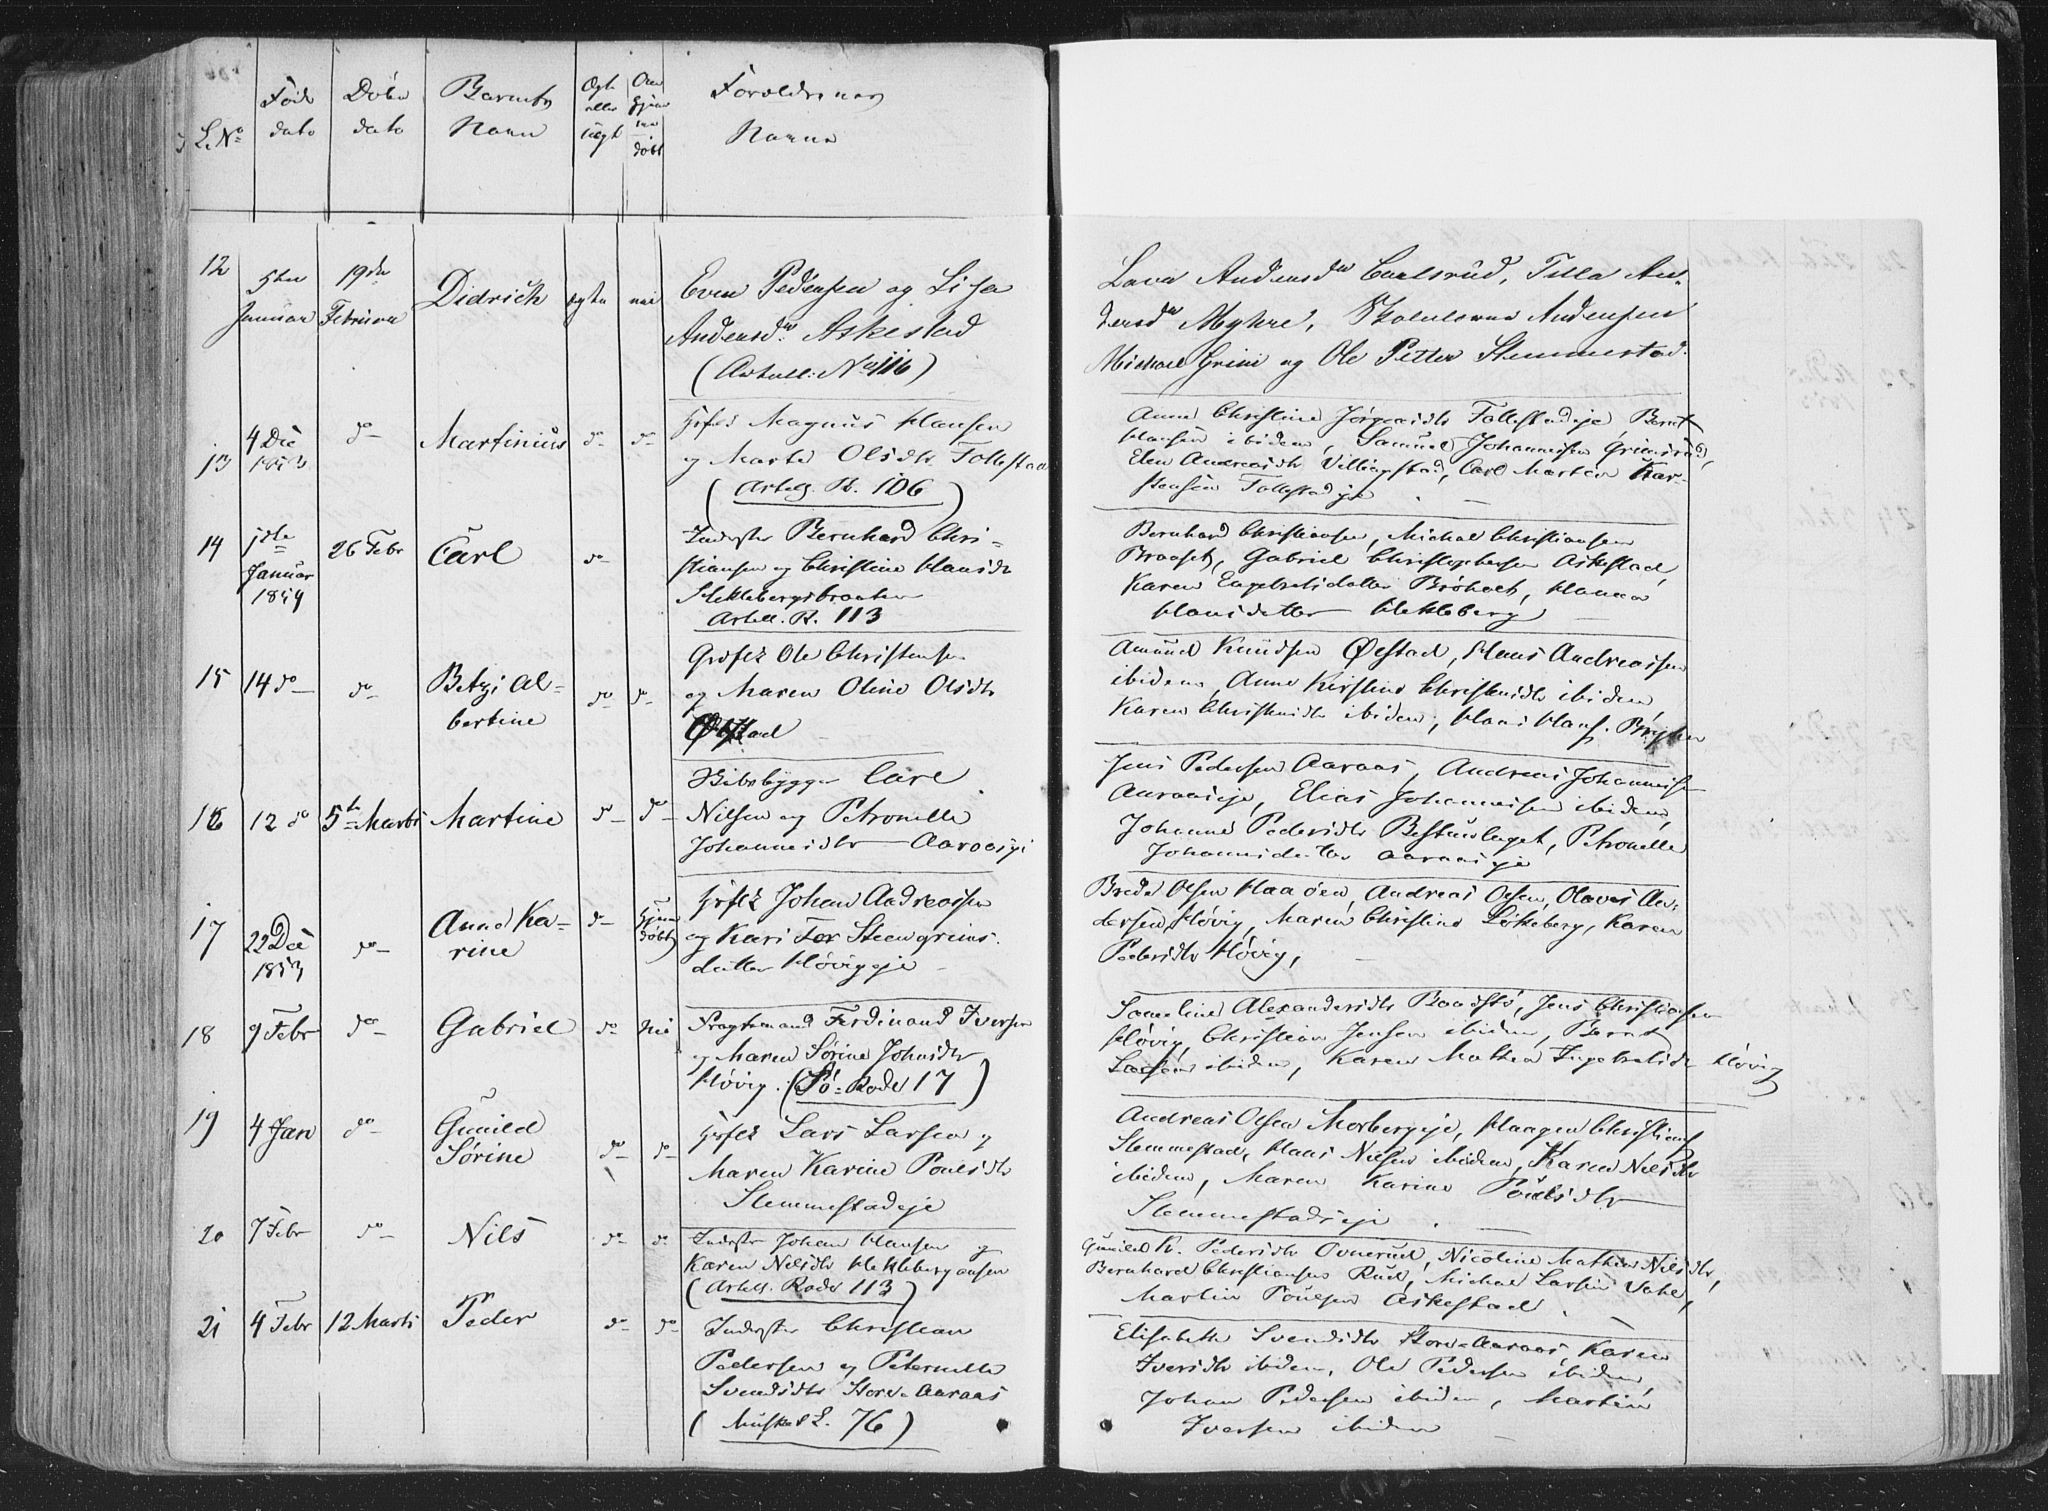 L. No
Føde
dato
Døbe
dato
Barnets
Navn
Ægte
eller
uægt
Om
hjem
me
døbt
Forældrenes
Navne
12
5te
Januar
19de
Februar
Didrich
ægte
nei
Even Pedersen og Lisa
Andersdr Askestad
(Artell: No 116)
Lava Andersdr Carlsrud, Tilla An-
dersdr Myhre, Andersen
Michael Grini og Ole Petter Slemmestad.
13
4 Dec
1853
do
Martinius
do
do
Hrfd Magnus Hansen
og Marte Olsdtr Follestad
(Artelg. R. 106)
Anne Christine Jørgensdtr Follestadeje Bernt
Hansen ibidem, Samuel Johannesen Grimsrud,
Elen Andreasdtr Villingstad, Carl Martin Kar-
stensen Follestadeje
14
1ste
Januar
1854
26 Febr
Carl
do
Inderster Bernhard Chri-
stiansen og Christine Hansdtr
Heklebergsbraaten
Artell. R. 113
Bernhard Christiansen, Michal Christiansen
Braaset, Gabriel Christophersen Askestad,
Karen Engebretsdatter Brøholt, Hanna
Hansdatter Hekleberg
15
14 do
do
Betzi Al-
bertine
do
do
Grdflk Ole Christensen
og Maren Oline Olsdtr
Østad
Amund Knudsen Østad, Hans Andreassen
ibidem, Anne Kirstine Christensdtr ibidem,
Karen Christensdtr ibidem, Hans Hans.
16
12 do
5te Marts
Martine
do
do
Bibsbygger Carl
Nilsen og Petronelle
Johannesdtr Aaraaseje
Jens Pedersen Aaraas, Andreas Johannesen
Aaraaseje, Elias Johannesen ibidem,
Johanne Pedersdtr Bestumlaget, Petronelle
Johannesdatter Aaraaseje
17
22 Dec
1853
do
Anne Ka-
rine
do
Hjem
døbt
Hrflk Johan Andreassen
og Kari Steengrims-
datter Høvigeje
Brede Olsen Haaøen, Andreas Olsen, Olaves An-
dersen Høvig, Maren Christine Løkeberg, Karen
Pedersdtr Høvig,
18
9 Febr
do
Gabriel
do
Nei
Fragtemand Ferdinand Iversen
og Maren Sørine Johnsdtr
Høvig. (Sø-Rode 17)
Sameline Alexandersdtr Baadstø, Jens Christiansen
Høvig, Christian Jensen ibidem, Bernt
Larsen ibidem, Karen Mathea Ingebretsdtr Høvig
19
4 Jan
do
Gunild
Sørine
do
do
Hrflk Lars Larsen og
Maren Karine Poulsdtr
Slemmestadeje
Andreas Olsen Morbergeje, Haagen Christians
Slemmestad, Hans Nilsen ibidem, Karen Nilsdtr
ibidem, Maren Karine Poulsdtr
Slemmestadseje
20
7 Febr
do
Nils
do
do
Inderster Johan Hansen og
Karen Nilsdtr Heklebergaasen
(Artelg. Rode 113)
Gunild K. Pedersdtr Ovnerud, Nicoline Mathea Nilsdtr,
Bernhard Christiansen Rud, Michal Larsen Vahl,
Martin Poulsen Askestad
21
4 Febr
12 Marts
Peder
do
do
Inderster Christian
Pedersen og Peternelle
Svendsdtr Store-Aaraas
(Musket L. 76)
Elisabeth Svendsdtr Store-Aaraas Karen
Iversdtr ibidem, Ole Pedersen ibidem,
Johan Pedersen ibidem, Martin
Iversen ibidem